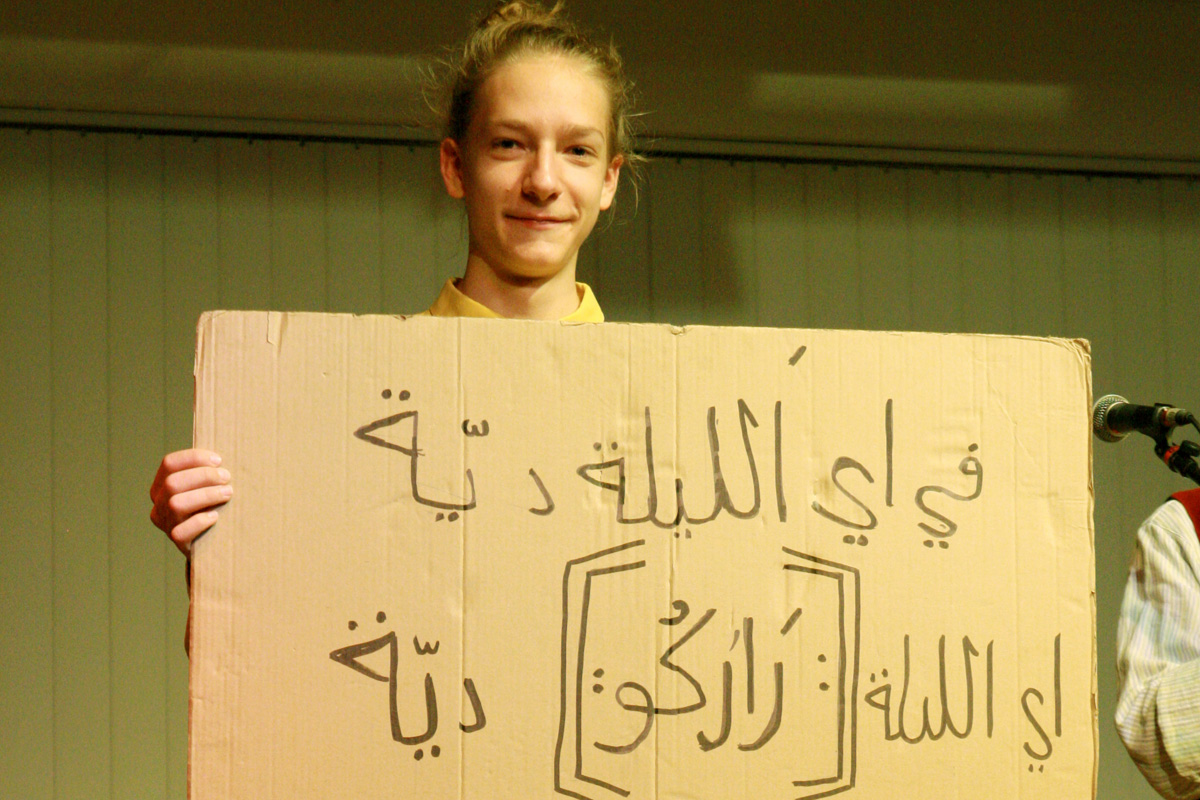 في اي اَلليلة ديّة
اي الللة [: رَارَكُو :] ديّة